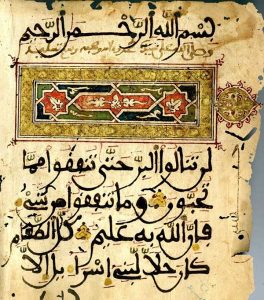 بسم الله الرحمن الرحيم
وصلى الله على
لن تنالوا البر حتى تنفقوا مما
تحبون وما تنفقوا من شيء
فإن الله به عليم كل الطعام
كان حلا لبني إسراءيل إلا